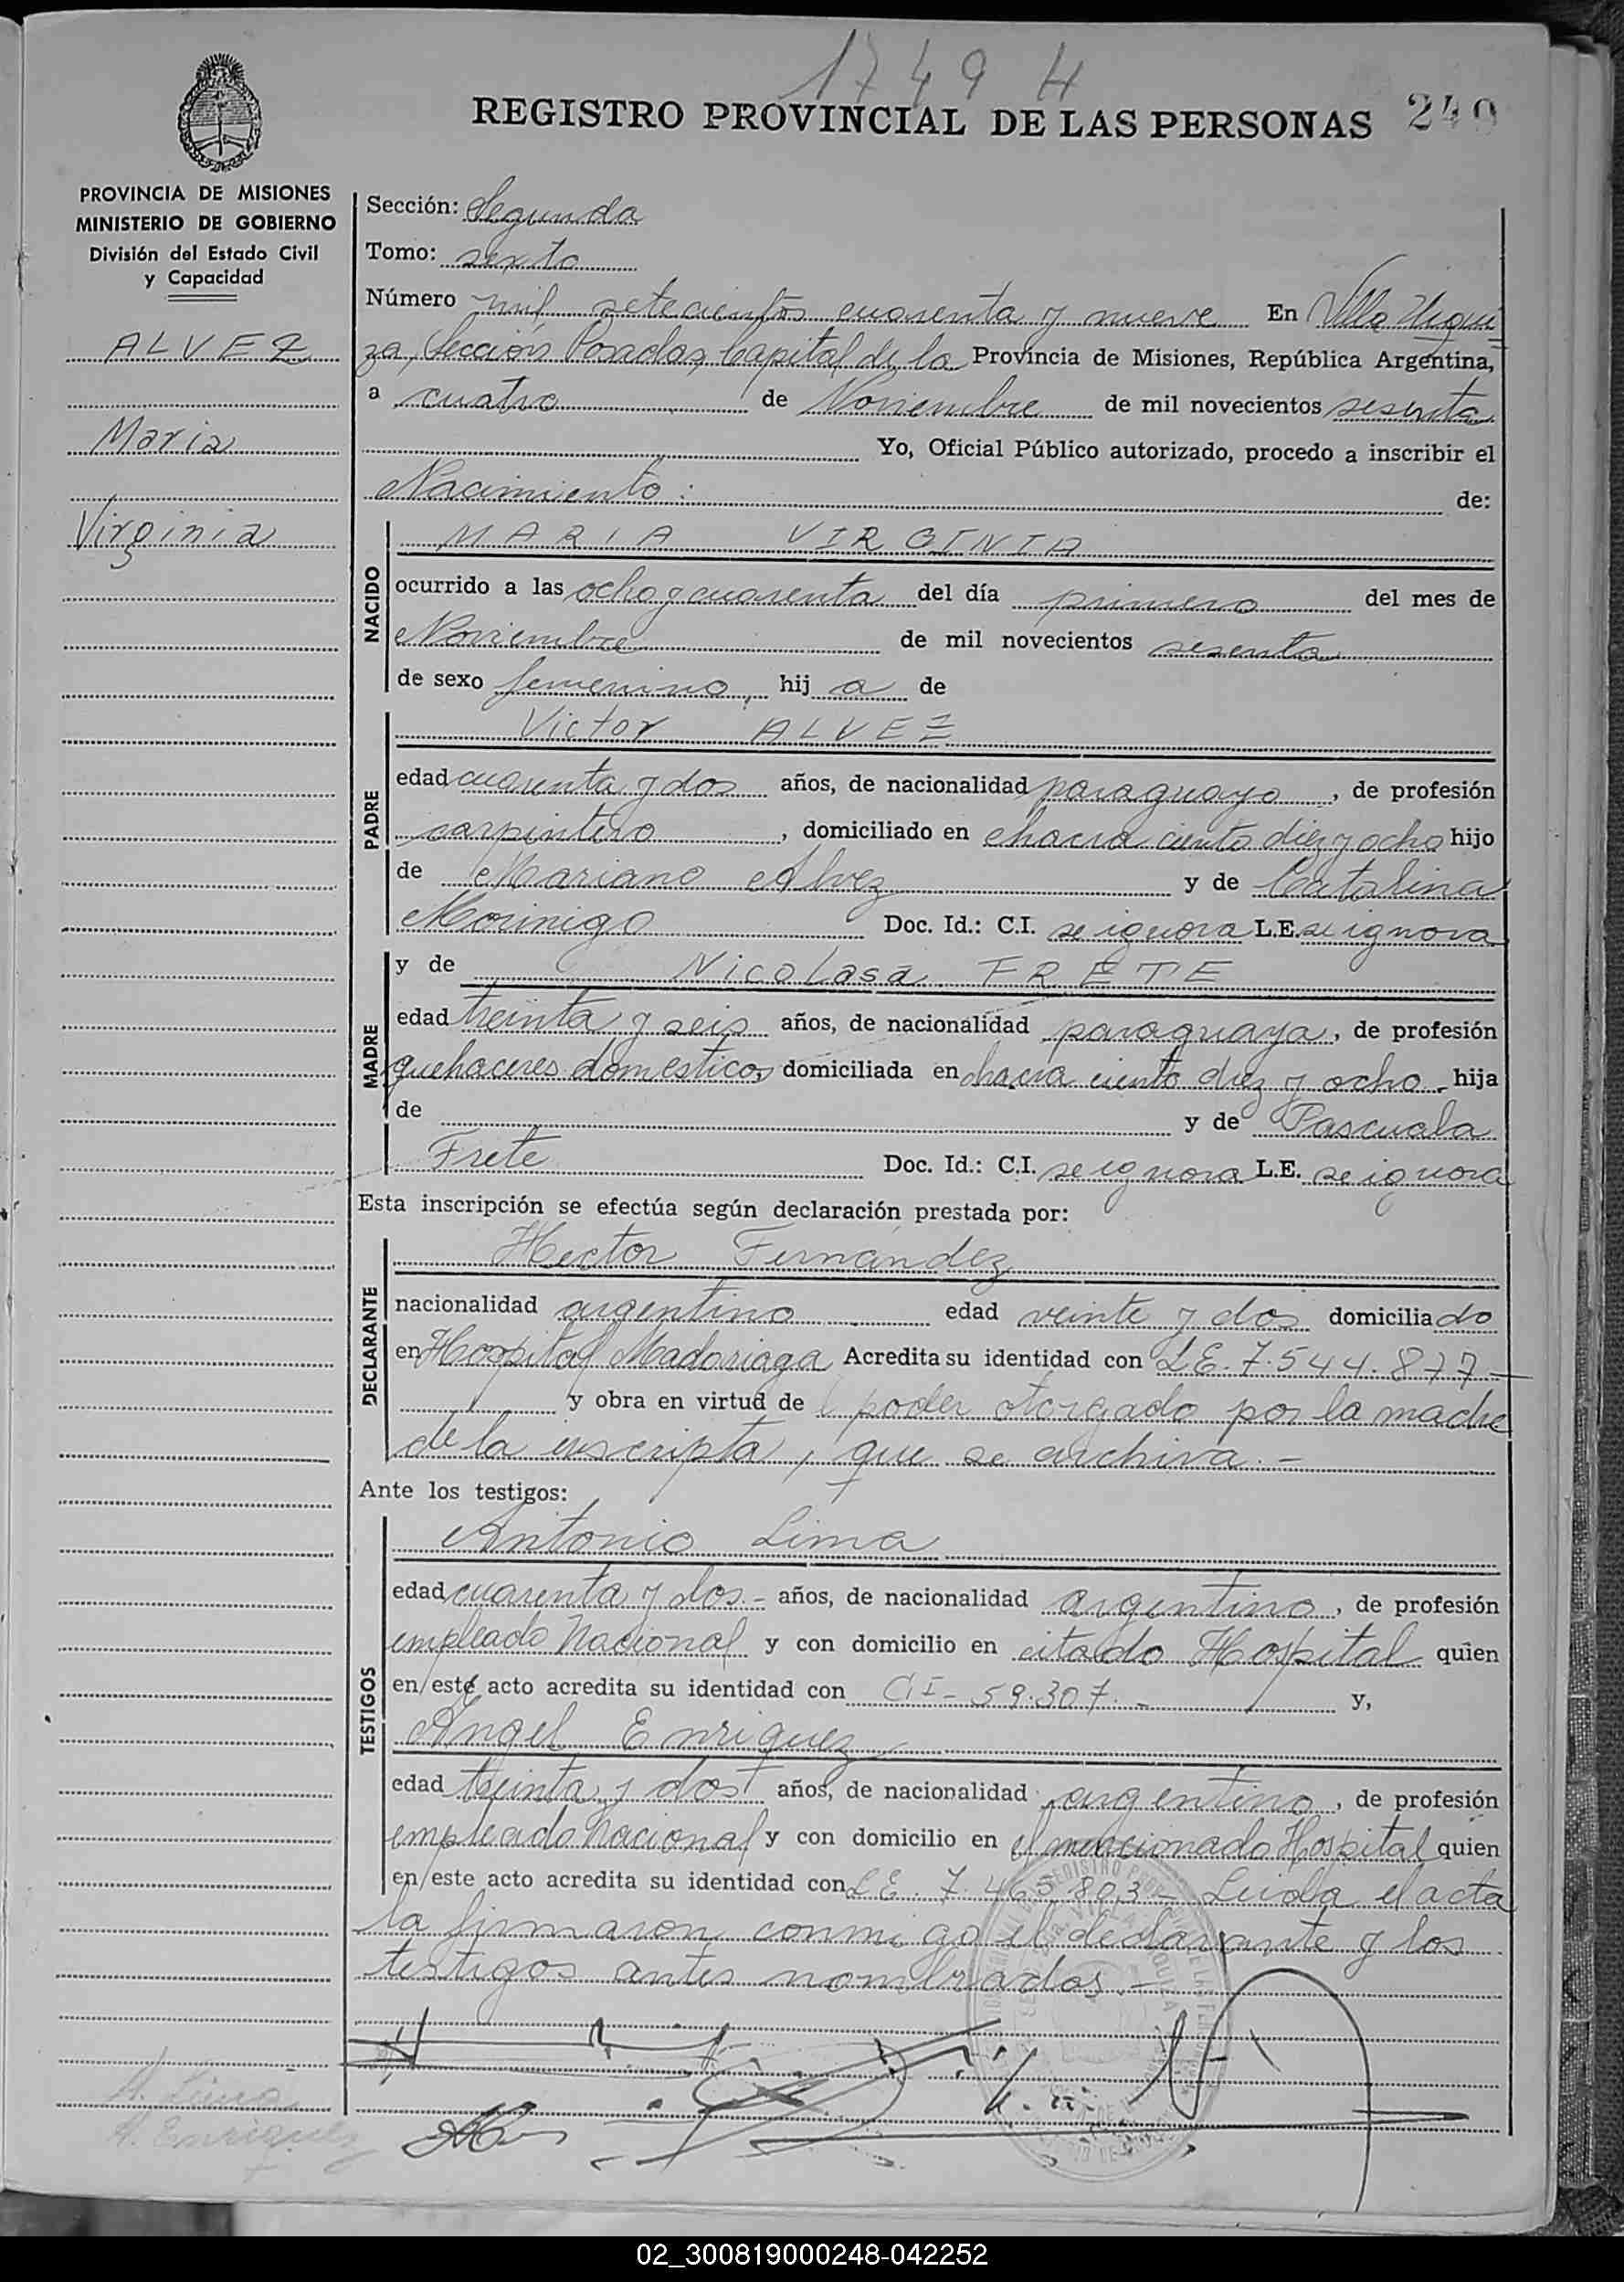 1749 H
REGISTRO PROVINCIAL DE LAS PERSONAS 240
PROVINCIA DE MISIONES
MINISTERIO DE GOBIERNO
División del Estado Civil
y Capacidad
ALVEZ
Maria
Virginia
Sección: Segunda
Tomo: sexto
Número mil setecientos cuarenta y nueve En Villa Urqui
za, Sección Posadas, Capital de la Provincia de Misiones, República Argentina,
a cuatro de Noviembre de mil novecientos sesenta
Yo, Oficial Público autorizado, procedo a inscribir el
Nacimiento: de:
NACIDO
MARIA VIRGINIA
ocurrido a las ocho y cuarenta del día primero del mes de
Noviembre de mil novecientos sesenta
de sexo femenino, hij a de
PADRE
Victor ALVEZ
edad cuarenta y dos años, de nacionalidad paraguayo, de profesión
carpintero, domiciliado en chacra ciento diez y ocho hijo
de Mariano Alvez y de Catalina
Morinigo Doc. Id.: C.I. se ignora L.E. se ignora
MADRE
y de Nicolasa FRETE
edad treinta y seis años, de nacionalidad paraguaya, de profesión
quehaceres domesticos, domiciliada en chacra ciento diez y ocho - hija
de y de Pascuala
Frete Doc. Id.: C.I. se ignora L.E. se ignora
Esta inscripción se efectúa según declaración prestada por:
DECLARANTE
Hector Fernández
nacionalidad argentino edad veinte y dos domiciliado
en Hospital Madariaga Acredita su identidad con L.E. 7.544.877 -
y obra en virtud de poder otorgado por la madre
de la inscripta, que se archiva. -
Ante los testigos:
TESTIGOS
Antonio Lima
edad cuarenta y dos - años, de nacionalidad argentino, de profesión
empleado Nacional y con domicilio en citado Hospital quien
en este acto acredita su identidad con C.I - 59.307. - y,
Angel Enriquez
edad treinta y dos años, de nacionalidad argentino, de profesión
empleado Nacional y con domicilio en el mencionado Hospital quien
en este acto acredita su identidad con L.E. 7.465.803 - Leida el acta
la firmaron conmigo el declarante y los
testigos antes nombrados. -
A. Lima
A. Enriquez
02_300819000248-042252